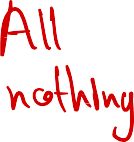 All
nothing